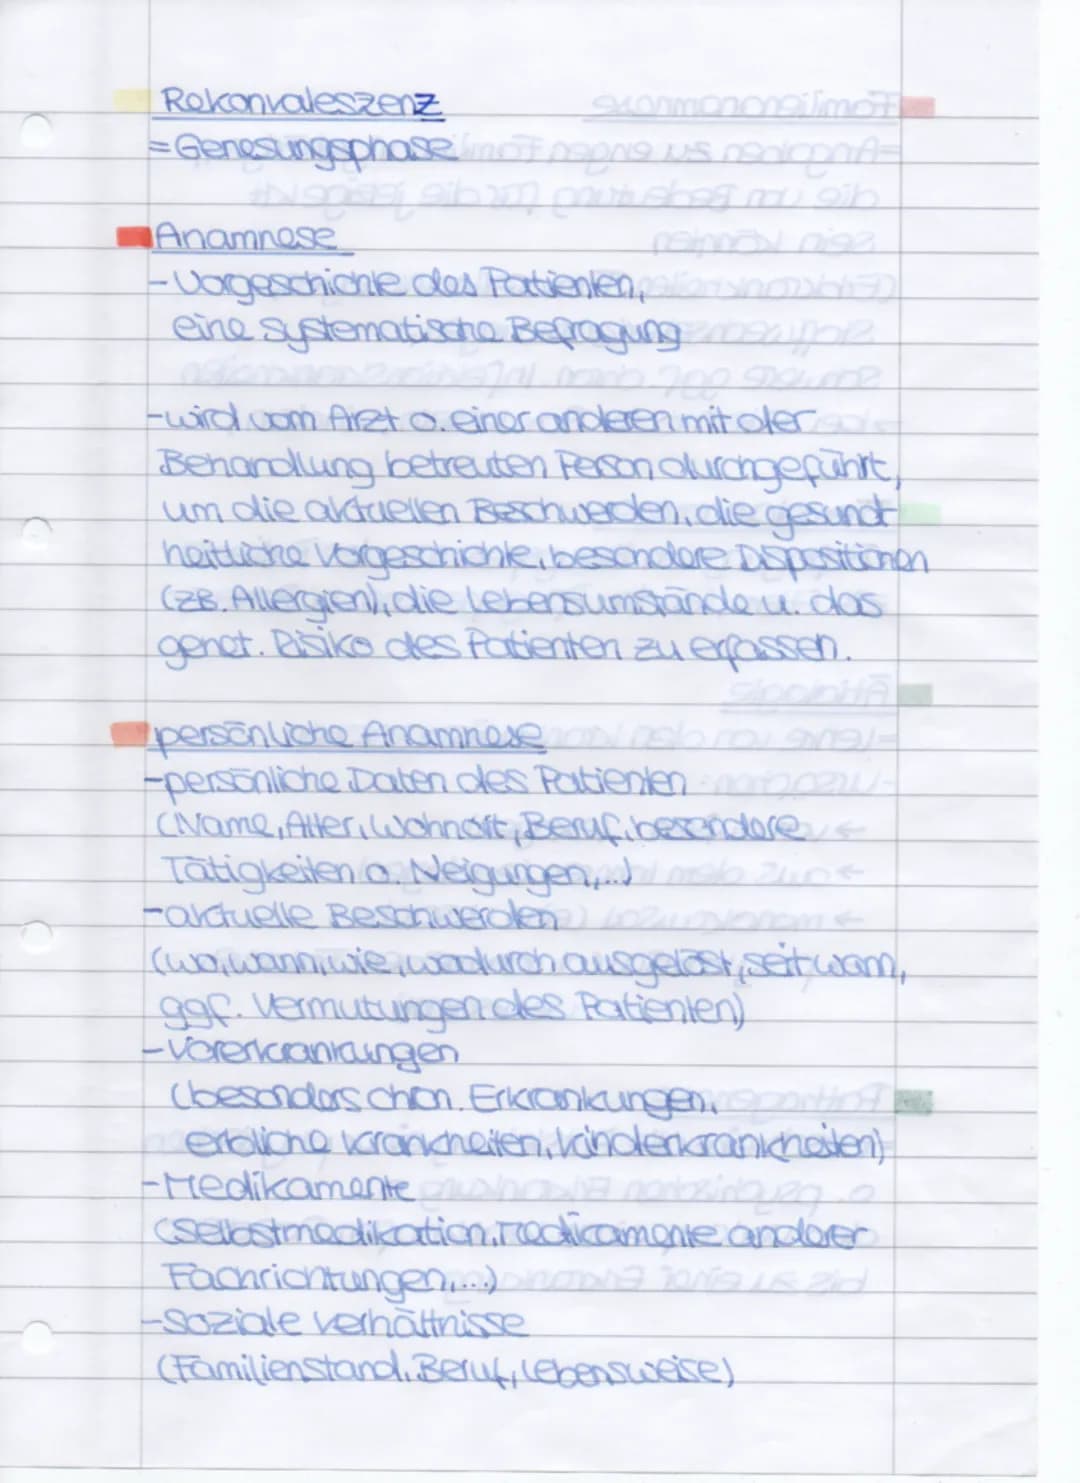 Rekonvaleszenz
= Genesungsphase
Anamnese
- Vorgeschichte des Patienten,
eine systematische Befragung
- wird vom Arzt o. einer anderen mit der
Behandlung betreuten Person durchgeführt,
um die aktuellen Beschwerden, die gesund
heitliche Vorgeschichte, besondere Dispositionen
(zB. Allergien), die Lebensumstände u. das
genet. Risiko des Patienten zu erfassen.
persönliche Anamnese
- persönliche Daten des Patienten
(Name, Alter, Wohnort, Beruf, besondere
Tätigkeiten o. Neigungen,...)
- aktuelle Beschwerden
(wo, wann, wie, wodurch ausgelöst, seit wann,
ggf. Vermutungen des Patienten)
- Vorerkrankungen
(besonders chron. Erkrankungen,
erbliche Krankheiten, Kinderkrankheiten)
- Medikamente
(Selbstmedikation, Medikamente anderer
Fachrichtungen,...)
- Soziale Verhältnisse
(Familienstand, Beruf, Lebensweise)